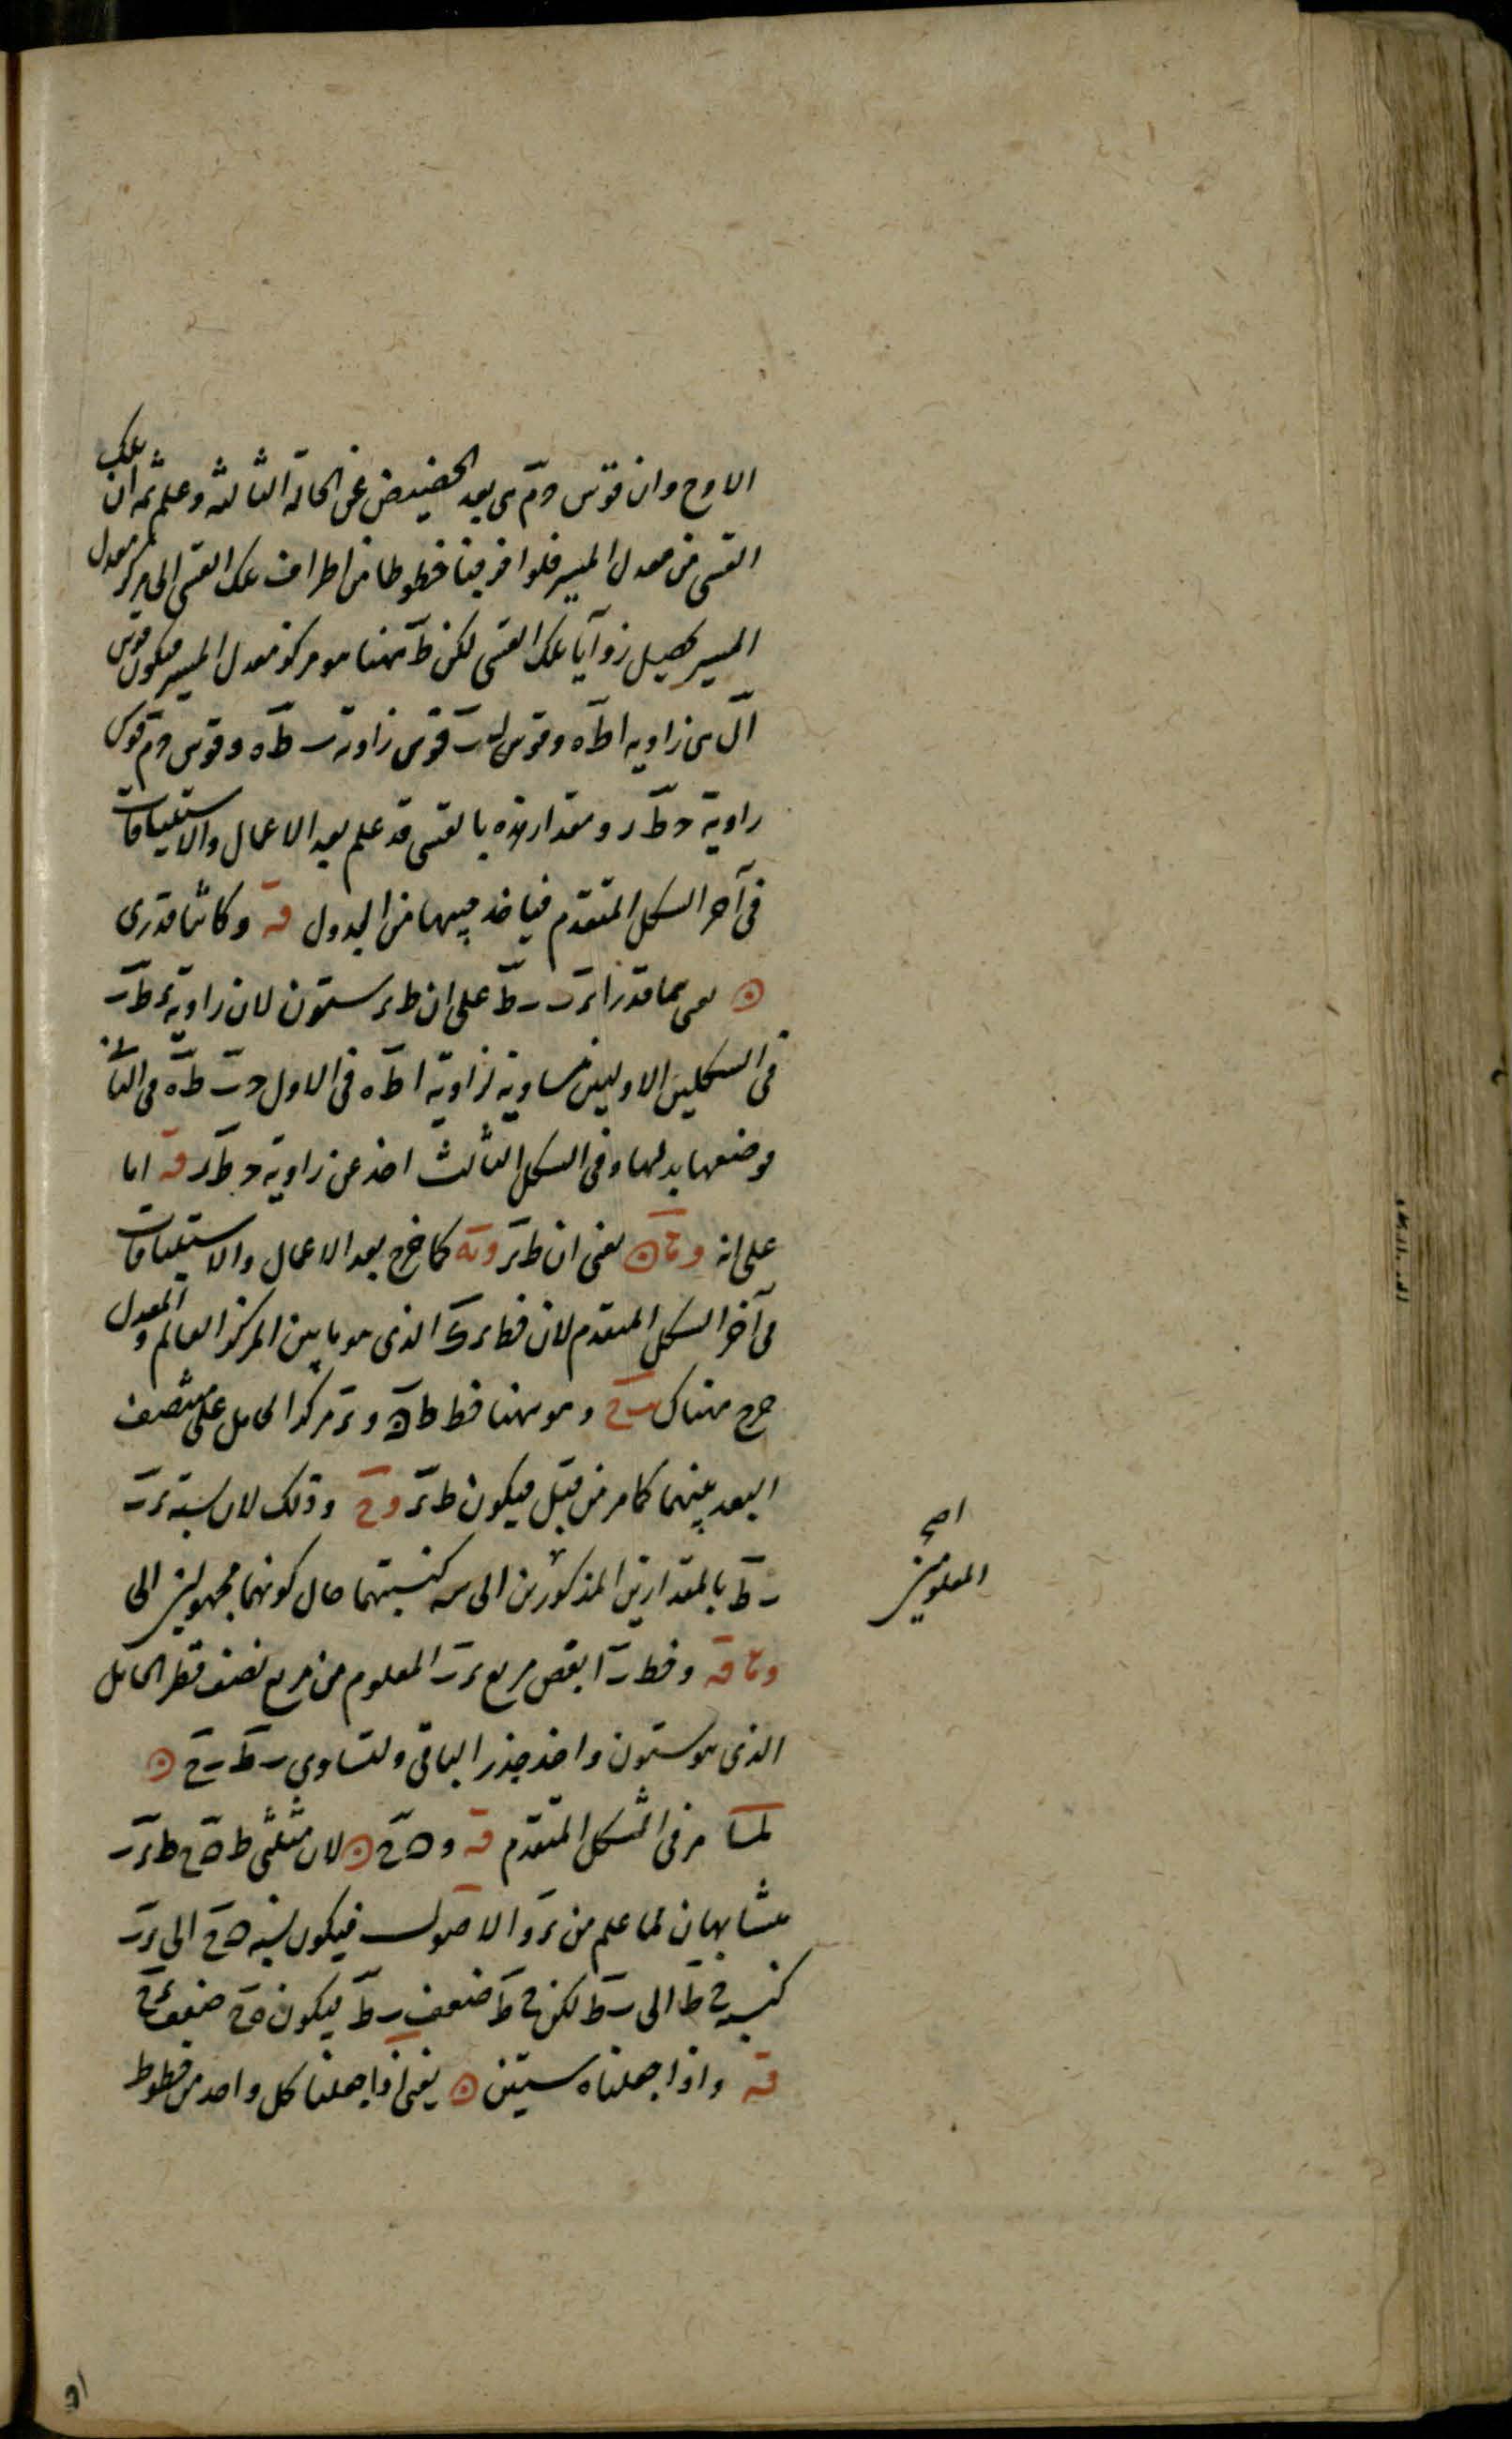 الاوج وان قوس دم هى بعد الحضيض عن الحالة الثالثة وعلم ثمه ان تلك
القسى من معدل المسير فلو اخرجنا خطوطا من اطراف تلك القسى الى مركز معدل
المسير يحصل زوايا تلك القسى لكن ط ههنا هو مركز معدل المسير فيكون قوس
ال هى زاوية اطه وقوس ل ب قوس زاوية ب طه وقوس دم قوس
زاوية حطر ومقدار هذه بالقسى قد علم بعد الاعمال والاستيناقات
فى آخر الشكل المتقدم فياخذ جيبها من الجدول قه وكانتا قدرى
يعنى بهما قدرا ىب ب ط على ان ط ى ستون لان زاوية ى ط ب
فى الشكلين الاوليين مساوية لزاوية اطه فى الاول وب طه فى الثانى
فوضعها بدلها وفى الشكل الثالث اخذ عن زاوية حطر قه اما
على انه يعنى ان ط ى كما خرج بعد الاعمال والاستيناقات
فى آخر الشكل المتقدم لان خط ىك الذى هو ما بين المركز العالم والمعدل
خرج هناك وهو ههنا خط طه وى مركز الحامل على منتصف
البعد بينهما كما مر من قبل فيكون ط ى وذلك لان نسبة ىب
ب ط بالمقدارين المذكورين الى كنسبتهما حال كونهما مجهولين الى
وخط ب ا بنقص مربع ىب المعلوم من مربع نصف قطر الحامل
الذى هو ستون واخذ جذر الباقى ولتساوى ب ط ب ح
لما مر فى الشكل المتقدم قه وه ح لان مثلثى ط ه ح ط ى ب
متشابهان لما علم من الاصول فيكون نسبة ه ح الى ىب
كنسبة ح ط الى ب ط لكن ح ط ضعف ب ط فيكون ه ح ضعف
قه واذا جعلناه ستين يعنى اذا جعلنا كل واحد من خطوط
المعلومين